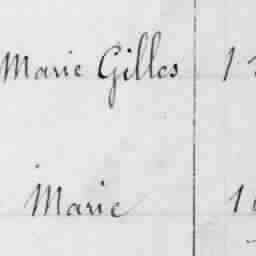 Marie Gilles 1
Marie 1